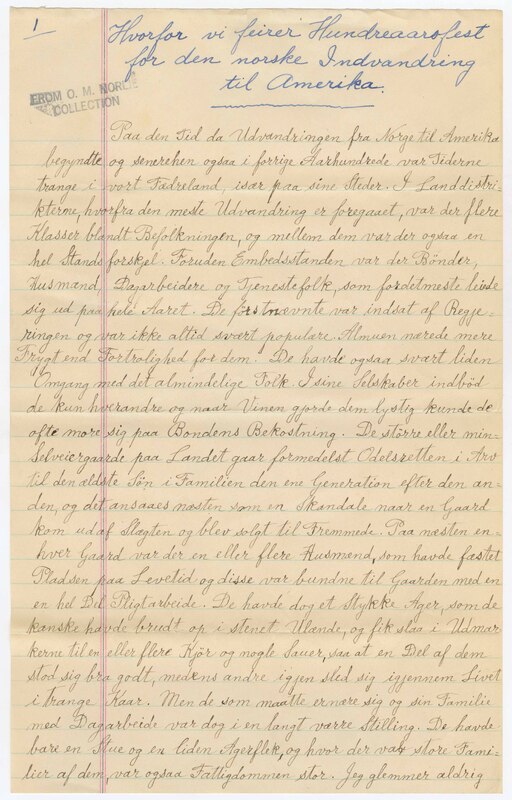 1
Hvorfor vi feirer Hundreaarsfest
for den norske Indvandring
til Amerika.
FROM O. M. NORLIE
COLLECTION
Paa den Tid da Udvandringen fra Norge til Amerika
begyndte og senerehen ogsaa i forrige Aarhundrede var Tiderne
trange i vort Fædreland, især paa sine Steder. I Landdistri-
kterne, hvorfra den meste Udvandring er foregaaet, var der flere
Klasser blandt Befolkningen, og mellem dem var der ogsaa en
hel Stands forskjel. Foruden Embedsstanden var der Bönder,
Husmænd, Dagarbeidere og Tjenestefolk, som fordetmeste leiede
sig ud paa hele Aaret. De förstnævnte var indsat af Regje-
ringen og var ikke altid svært populære. Almuen nærede mere
Frygt end Fortrolighed for dem. De havde ogsaa svært liden
Omgang med det almindelige Folk. I sine Selskaber indböd
de kun hverandre og naar Vinen gjorde dem lystig kunde de
ofte more sig paa Bondens Bekostning. De större eller min-
Selveiergaarde paa Landet gaar formedelst Odelsretten i Arv
til den ældste Sön i Familien den ene Generation efter den an-
den, og det ansaaes næsten som en Skandale naar en Gaard
kom ud af Slægten og blev solgt til Fremmede. Paa næsten en-
hver Gaard var der en eller flere Husmænd, som havde fæstet
Pladsen paa Levetid og disse var bundne til Gaarden med en
en hel Del Pligtarbeide. De havde dog et Stykke Ager, som de
kanske havde brudt op i stenet Ulænde, og fik staa i Udmar-
kerne til en eller flere Kjör og nogle Sauer, saa at en Del af dem
stod sig bra godt, medens andre igjen sled sig igjennem Livet
i trange Kaar. Men de som maatte ernære sig og sin Familie
med Dagarbeide var dog i en langt værre Stilling. De havde
bare en Stue og en liden Agerflek, og hvor der var store Fami-
lier af dem, var ogsaa Fattigdommen stor. Jeg glemmer aldrig